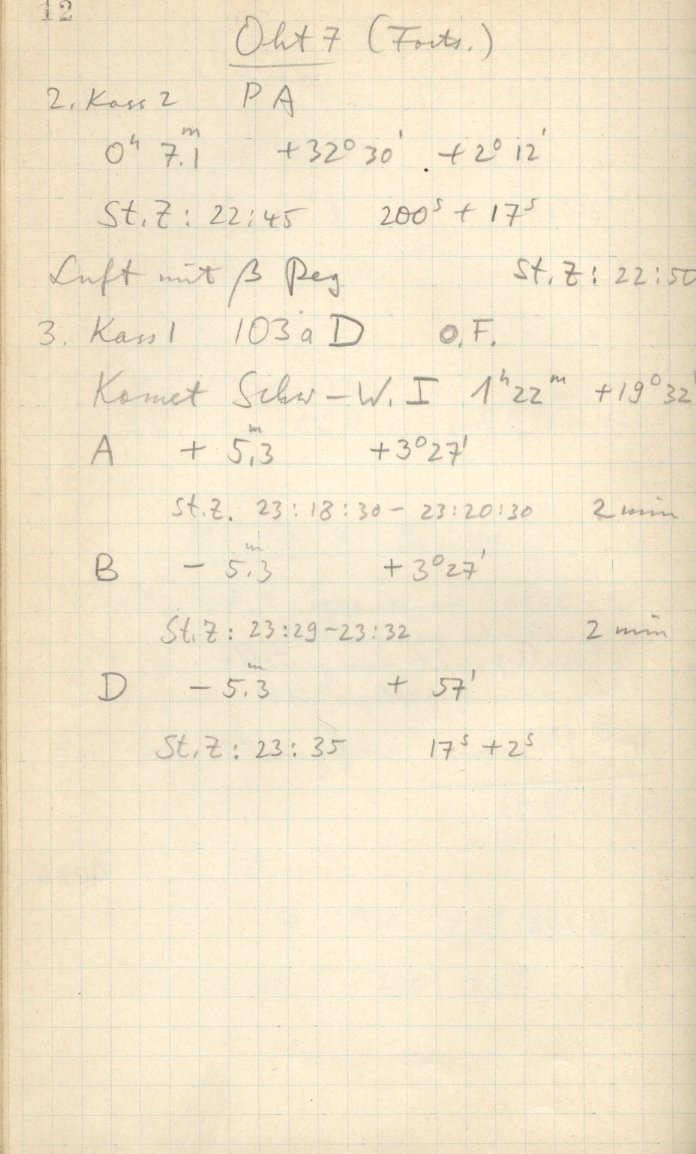 12
Okt 7 (Forts.)
2. Kass 2 P A
0ʰ 7.1ᵐ +32° 30' +2° 12'
St.Z: 22:45 200ˢ + 17ˢ
Luft mit β Peg St.Z: 22:50
3. Kass 1 103a D o.F.
Komet Schw-W. I 1ʰ22ᵐ +19°32'
A + 5.3ᵐ +3°27'
St.Z. 23:18:30 - 23:20:30 2 min
B - 5.3ᵐ +3°27'
St.Z: 23:29-23:32 2 min
D - 5.3ᵐ + 57'
St.Z: 23:35 17ˢ +2ˢ